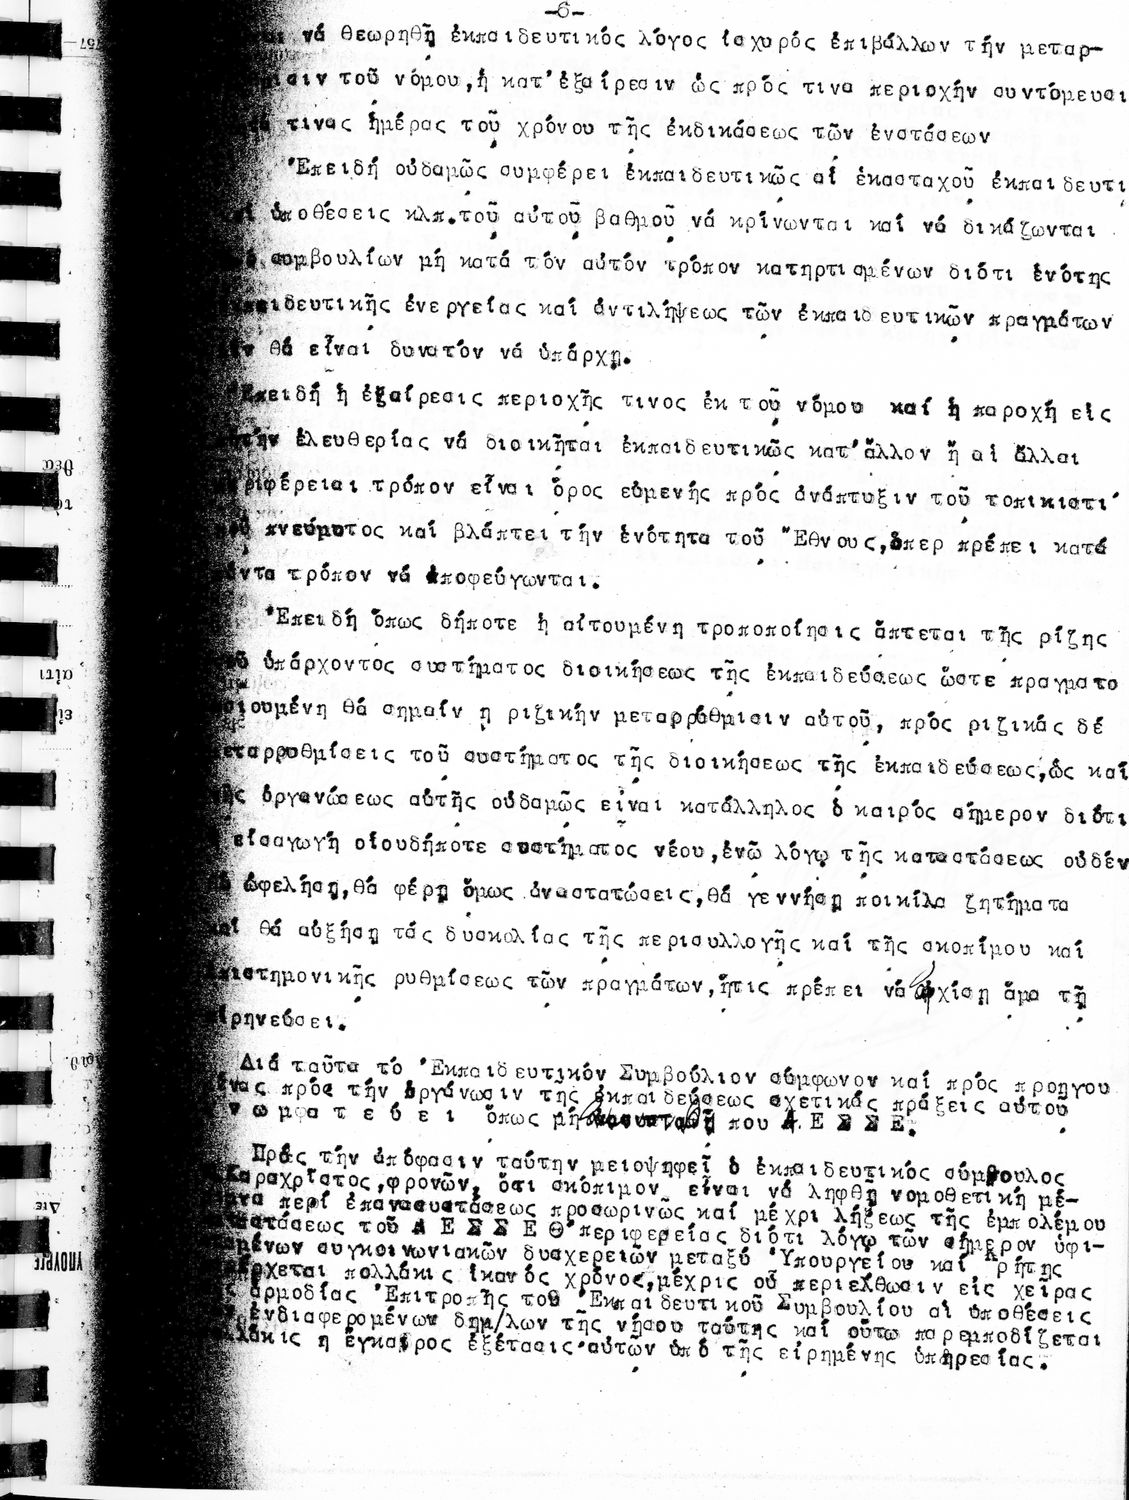 -6-
νά θεωρηθῇ ἐκπαιδευτικός λόγος ἰσχυρός ἐπιβάλλων τήν μεταρ-
τοῦ νόμου,ἡ κατ'ἐξαίρεσιν ὡς πρός τινα περιοχήν συντόμευσι
τινας ἡμέρας τοῦ χρόνου τῆς ἐκδικάσεως τῶν ἐνστάσεων
Ἐπειδή οὐδαμῶς συμφέρει ἐκπαιδευτικῶς αἱ ἑκασταχοῦ ἐκπαιδευτι
ὑποθέσεις κλπ.τοῦ αὐτοῦ βαθμοῦ νά κρίνωνται καί νά δικάζωνται
συμβουλίων μή κατά τόν αὐτόν τρόπον κατηρτισμένων διότι ἑνότης
ἐκπαιδευτικῆς ἐνεργείας καί ἀντιλήψεως τῶν ἐκπαιδευτικῶν πραγμάτων
θά εἶναι δυνατόν νά ὑπάρχῃ.
Ἐπειδή ἡ ἐξαίρεσις περιοχῆς τινος ἐκ τοῦ νόμου καί ἡ παροχή εἰς
αὐτήν ἐλευθερίας νά διοικῆται ἐκπαιδευτικῶς κατ'ἄλλον ἤ αἱ ἄλλαι
περιφέρειαι τρόπον εἶναι ὅρος εὐμενής πρός ἀνάπτυξιν τοῦ τοπικιστι
πνεύματος καί βλάπτει τήν ἑνότητα τοῦ Ἔθνους,ὅπερ πρέπει κατά
πάντα τρόπον νά ἀποφεύγωνται.
Ἐπειδή ὅπως δήποτε ἡ αἰτουμένη τροποποίησις ἅπτεται τῆς ρίζης
ὑπάρχοντος συστήματος διοικήσεως τῆς ἐκπαιδεύσεως ὥστε πραγματο
ποιουμένη θά σημαίν ῃ ριζικήν μεταρρύθμισιν αὐτοῦ, πρός ριζικάς δέ
μεταρρυθμίσεις τοῦ συστήματος τῆς διοικήσεως τῆς ἐκπαιδεύσεως,ὡς καί
τῆς ὀργανώσεως αὐτῆς οὐδαμῶς εἶναι κατάλληλος ὁ καιρός σήμερον διότι
εἰσαγωγή οἱουδήποτε συστήματος νέου,ἐνῶ λόγῳ τῆς καταστάσεως οὐδέν
ὠφελήσῃ,θά φέρῃ ὅμως ἀναστατώσεις,θά γεννήσῃ ποικίλα ζητήματα
καί θά αὐξήσῃ τάς δυσκολίας τῆς περισυλλογῆς καί τῆς σκοπίμου καί
ἐπιστημονικῆς ρυθμίσεως τῶν πραγμάτων,ἥτις πρέπει νά ἀρχίσῃ ἅμα τῇ
εἰρηνεύσει.
Διά ταῦτα τό Ἐκπαιδευτικόν Συμβούλιον σύμφωνον καί πρός προηγου
μένας πρός τήν ὀργάνωσιν τῆς ἐκπαιδεύσεως σχετικάς πράξεις αὐτοῦ
γ ν ω μ α τ ε ύ ε ι ὅπως μή συσταθῇ που Α Ε Σ Σ Ε.
Πρός τήν ἀπόφασιν ταύτην μειοψηφεῖ ὁ ἐκπαιδευτικός σύμβουλος
Καραχρίστος,φρονῶν, ὅτι σκόπιμον εἶναι νά ληφθῇ νομοθετική μέ-
περί ἐπανασυστάσεως προσωρινῶς καί μέχρι λήξεως τῆς ἐμπολέμου
καταστάσεως τοῦ Α Ε Σ Σ Ε Θ'περιφερείας διότι λόγῳ τῶν σήμερον ὑφι-
σταμένων συγκοινωνιακῶν δυσχερειῶν μεταξύ Ὑπουργείου καί Κρήτης
παρέρχεται πολλάκις ἱκανός χρόνος,μέχρις οὗ περιέλθωσιν εἰς χεῖρας
ἁρμοδίας Ἐπιτροπῆς τοῦ Ἐκπαιδευτικοῦ Συμβουλίου αἱ ὑποθέσεις
ἐνδιαφερομένων δημ/λων τῆς νήσου ταύτης καί οὕτω παρεμποδίζεται
πολλάκις ἡ ἔγκαιρος ἐξέτασις αὐτῶν ὑπό τῆς εἰρημένης ὑπηρεσίας.